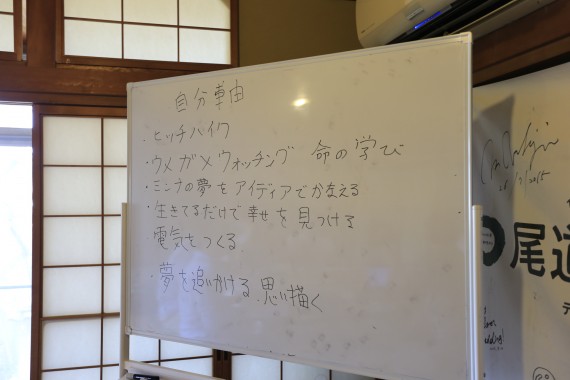 自分事由
・ヒッチハイク
・ウメガメウォッチング 命の学び
・ミンナの夢をアイディアでかなえる
・生きてるだけで幸せを見つける
電気をつくる
・夢を追いかける、思い描く
尾道